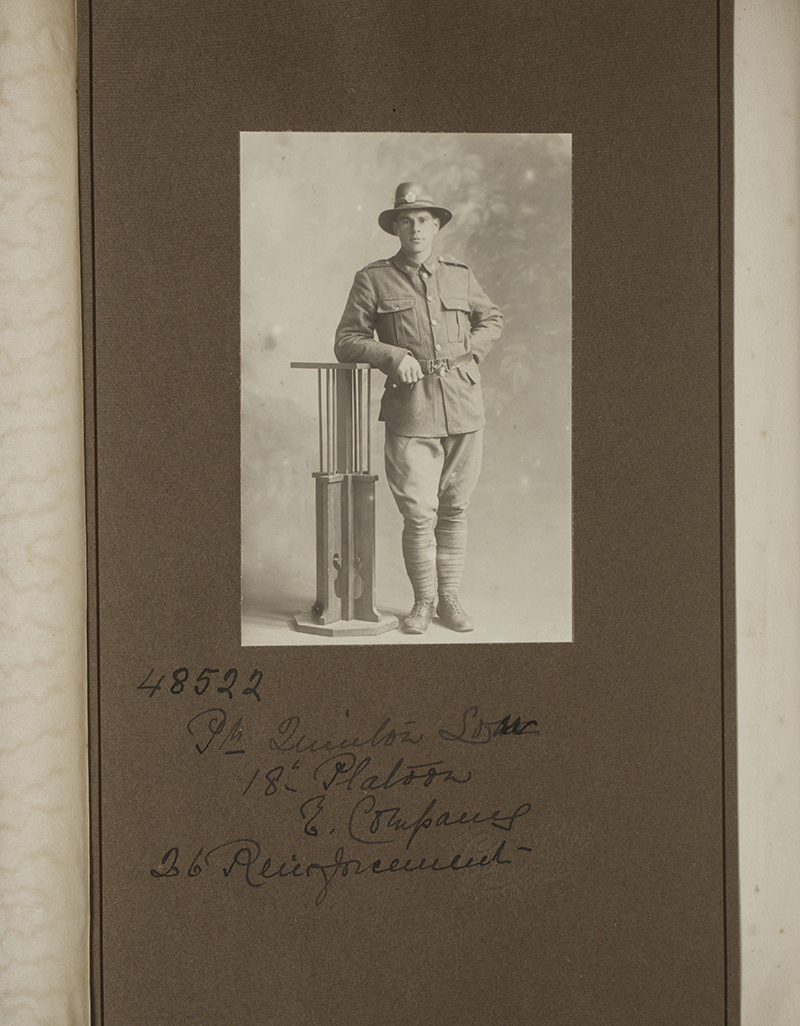 48522
Pte Quinton Low
18th Platoon
E. Company
26 Reinforcement